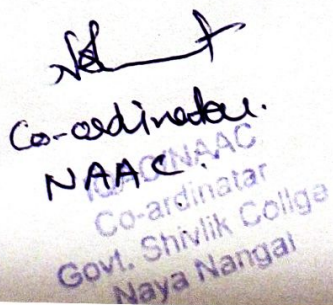 Co-ordinator.
NAAC.
IQAC/NAAC
Co-ardinatar
Govt. Shivlik Collge
Naya Nangal